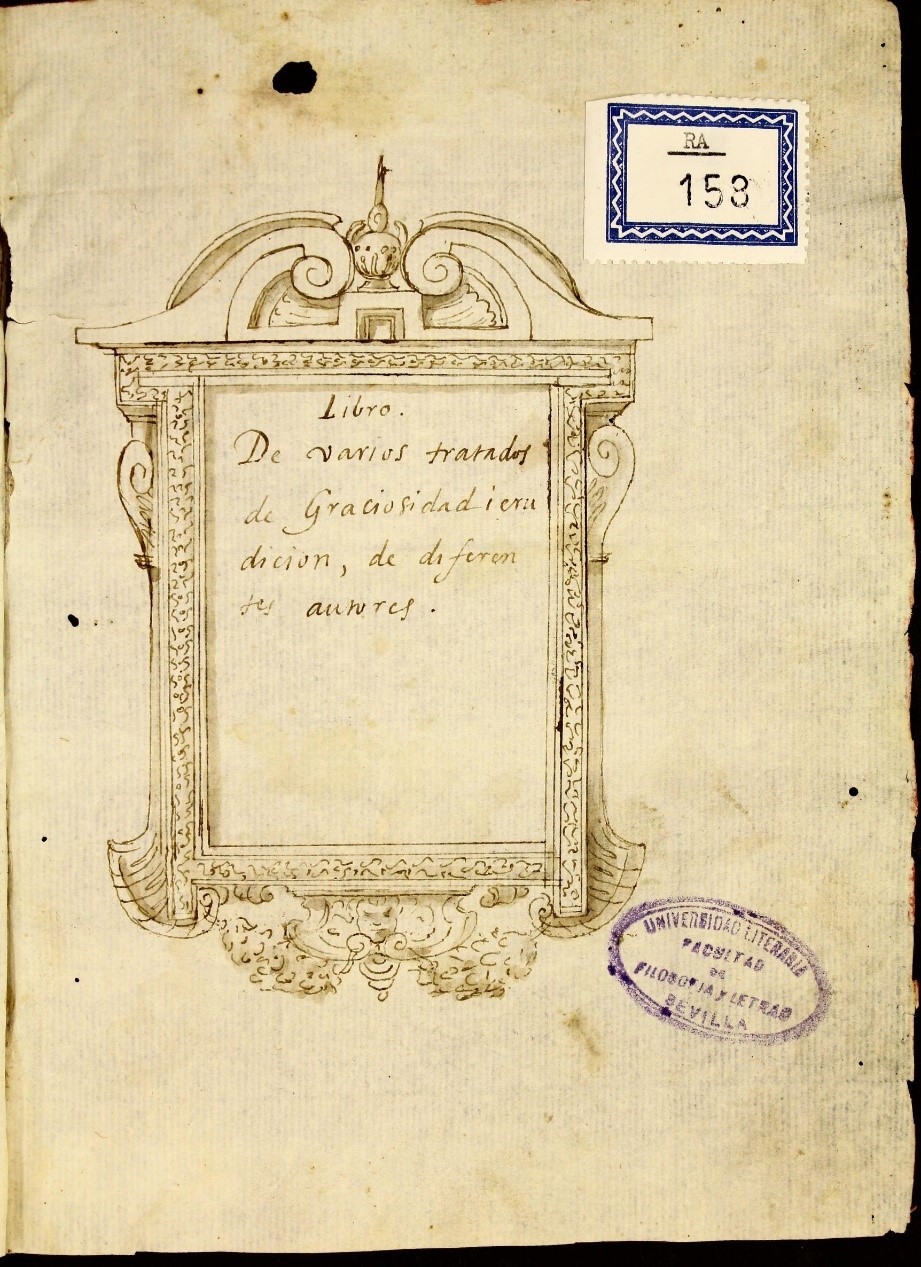 RA
158
Libro.
De varios tratados
de Graciosidad i eru
dicion, de diferen
tes autores.
UNIVERSIDAD LITERARIA
FACULTAD
DE
FILOSOFIA Y LETRAS
SEVILLA